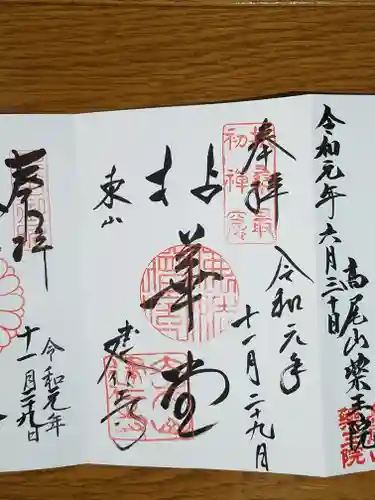 令和元年六月三十日
高尾山薬王院
奉拝
令和元年
十一月二十九日
拈華堂
東山
建仁寺
奉拝
令和元年
十一月二九日